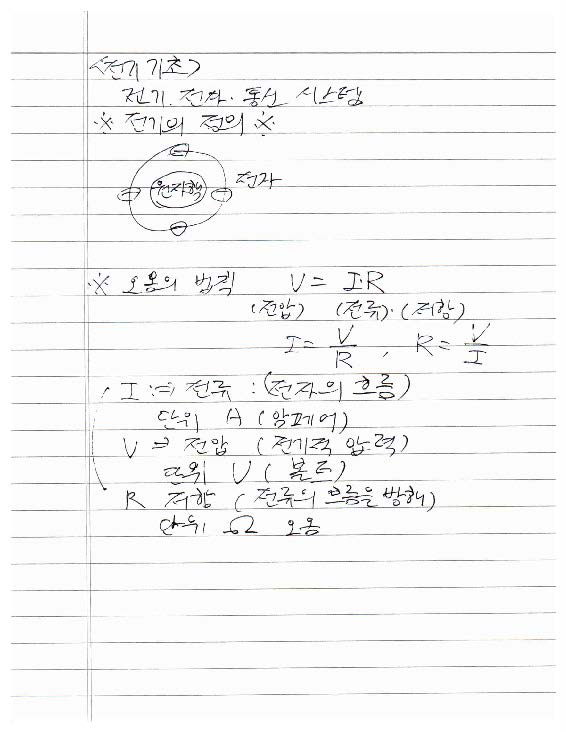 <전기 기초>
전기. 전자. 통신 시스템
※ 전기의 정의 ※
원자핵 전자
※ 오옴의 법칙 V = I·R
(전압) (전류)·(저항)
I = V/R , R = V/I
I :⇒ 전류 : (전자의 흐름)
단위 A (암페어)
V ⇒ 전압 (전기적 압력)
단위 V (볼트)
R 저항 (전류의 흐름을 방해)
단위 Ω 오옴